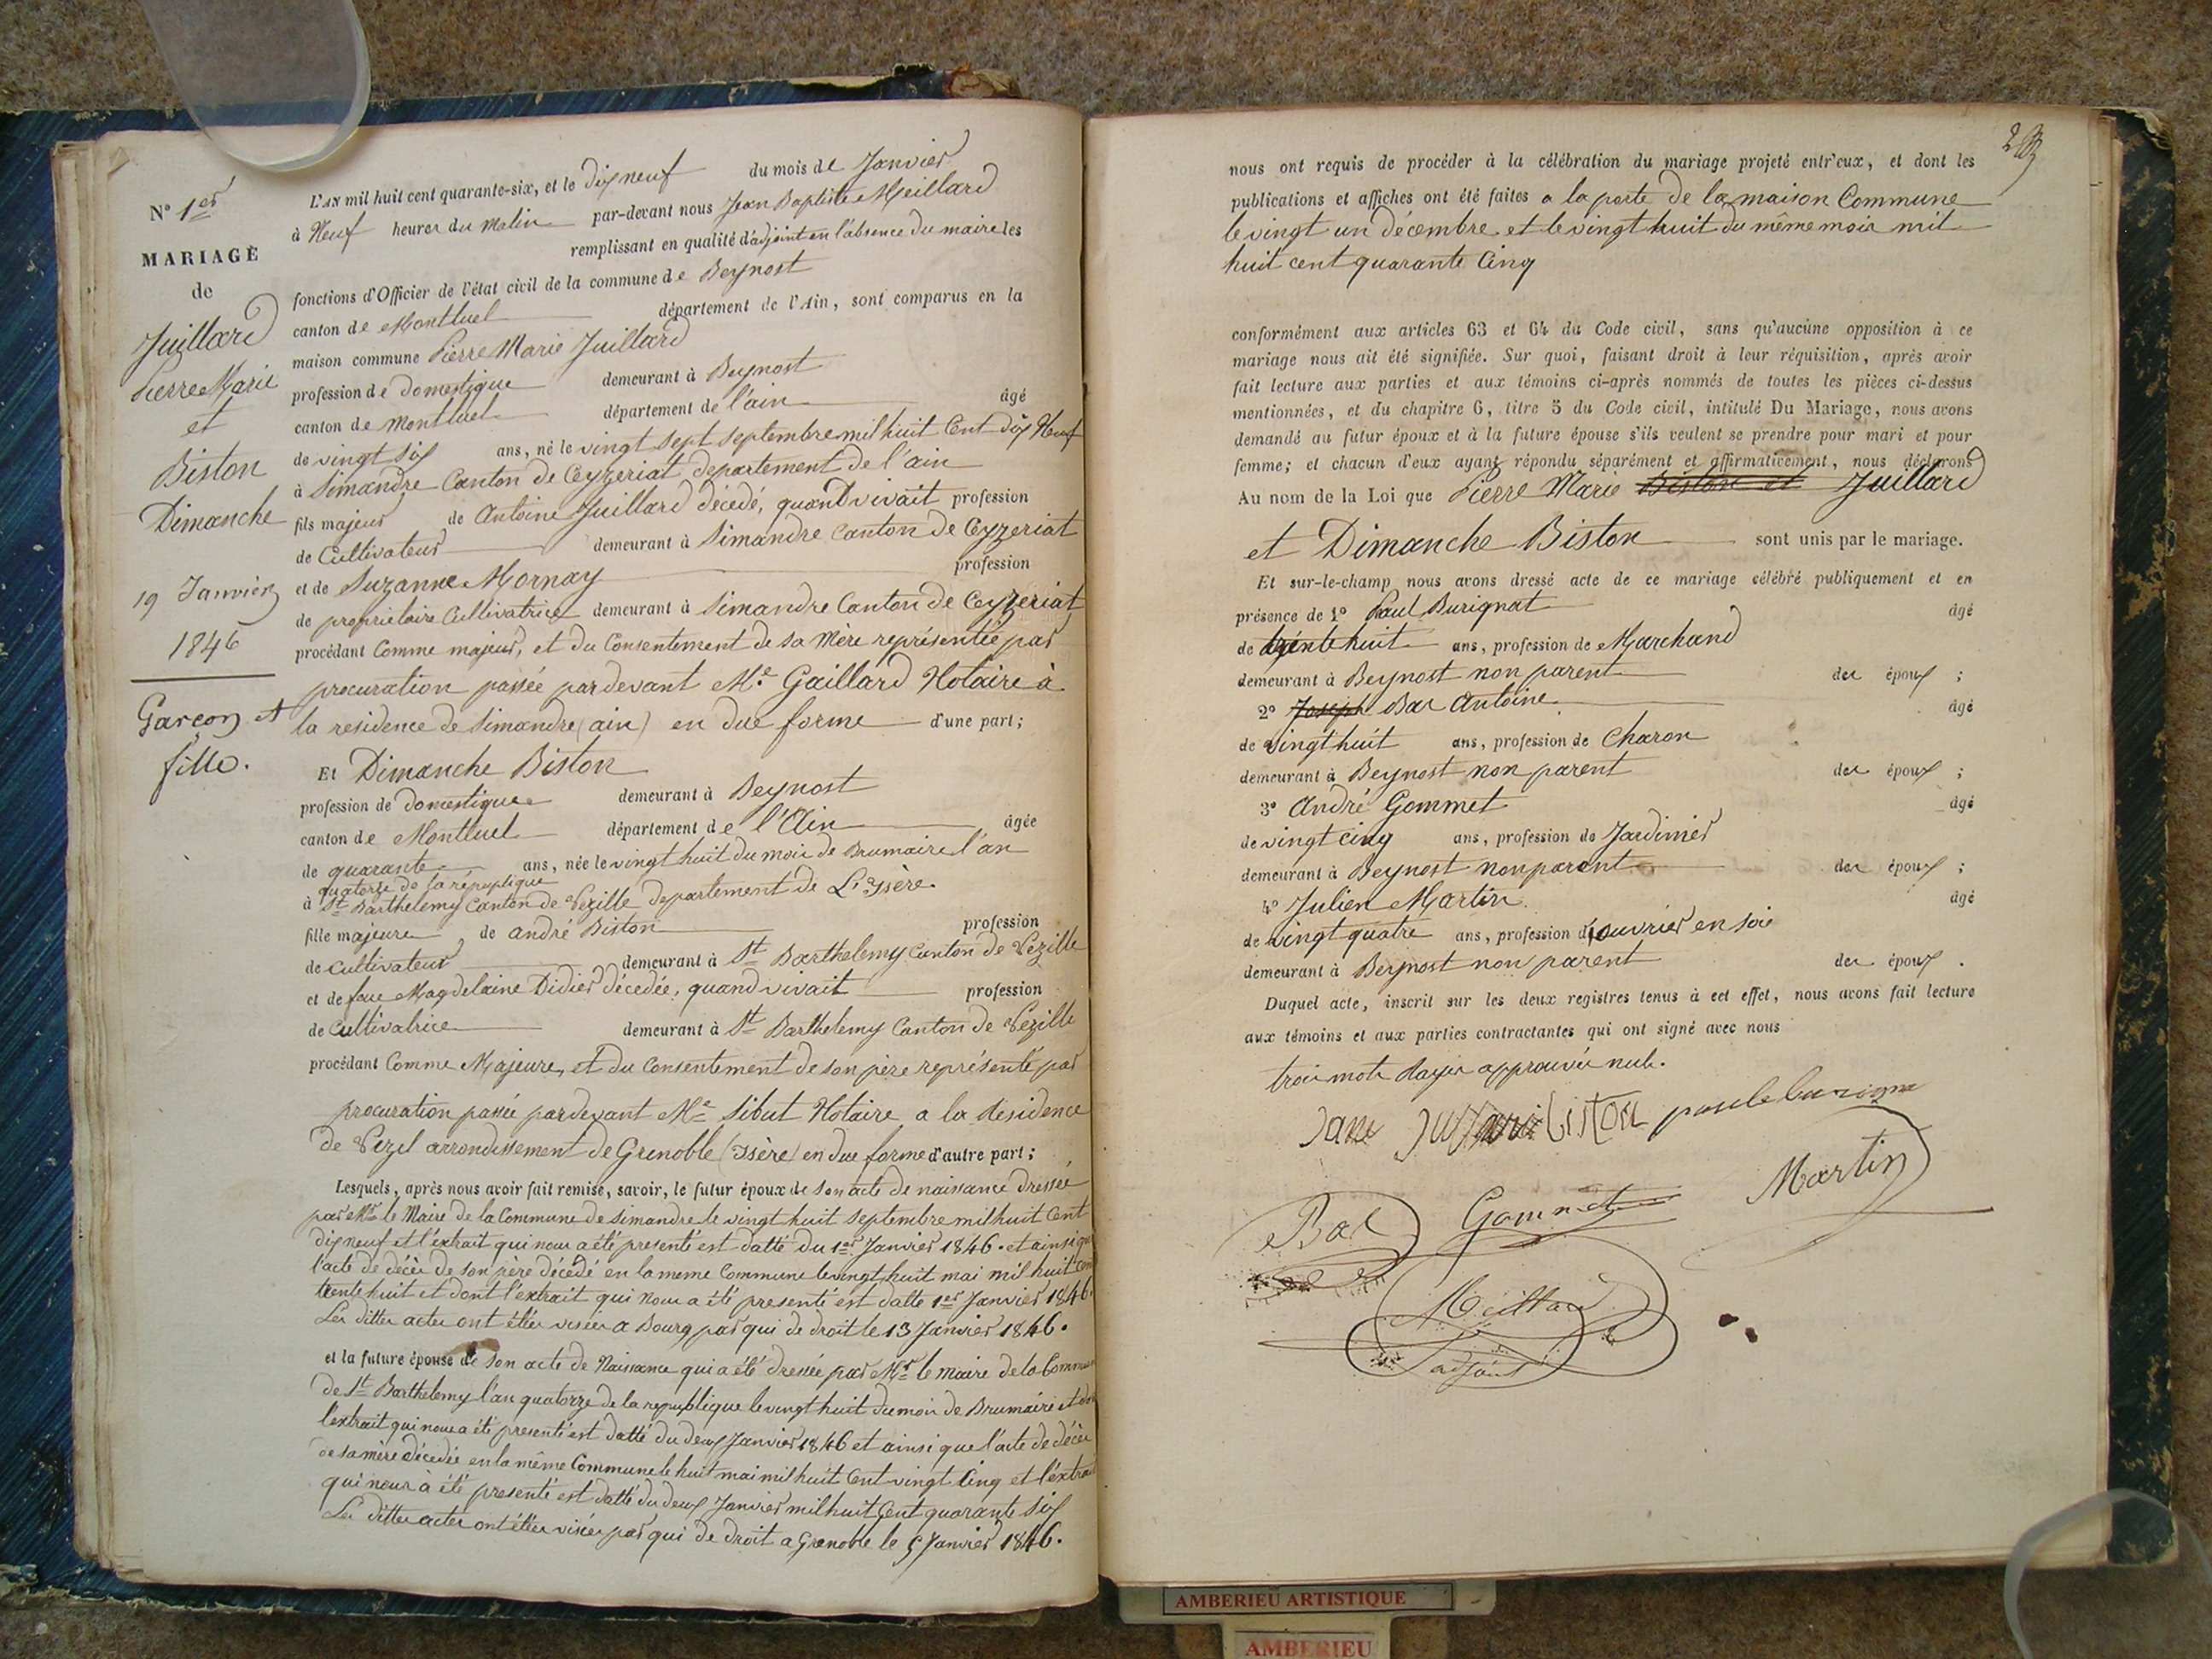 N° 1er
MARIAGE
de
Juillard
Pierre Marie
et
Biston
Dimanche
19 Janvier
1846
Garçon et
fille.
L'AN mil huit cent quarante-six, et le dix neuf du mois de Janvier
à Neuf heures du Matin par-devant nous Jean Baptiste Meillard
remplissant en qualité d'adjoint en l'absence du maire les
fonctions d'Officier de l'état civil de la commune de Beynost
canton de Montluel département de l'Ain, sont comparus en la
maison commune Pierre Marie Juillard
profession de domestique demeurant à Beynost
canton de Montluel département de l'ain âgé
de vingt six ans, né le vingt sept septembre mil huit Cent dix Neuf
à Simandre Canton de Ceyzeriat departement de l'ain
fils majeur de Antoine Juillard décédé, quand vivait profession
de Cultivateur demeurant à Simandre Canton de Ceyzeriat
et de Suzanne Mornay profession
de propriétaire Cultivatrice demeurant à Simandre Canton de Ceyzeriat
procédant Comme majeur, et du Consentement de sa Mère représentée par
procuration passée pardevant Me Gaillard Notaire à
la residence de Simandre (ain) en due forme d'une part;
Et Dimanche Biston
profession de domestique demeurant à Beynost
canton de Montluel département de l'Ain âgée
de quarante ans, née le vingt huit du mois de Brumaire l'an
quatorze de la république
à St Barthelemy Canton de Vezille departement de L'isère.
fille majeure de andré Biston profession
de Cultivateur demeurant à St Barthelemy Canton de Vezille
et de feue Magdelaine Didier décedée, quand vivait profession
de Cultivatrice demeurant à St Barthelemy Canton de Vezille
procédant Comme Majeure, et du Consentement de son père représenté par
procuration passée pardevant Me Sibut Notaire a la Residence
de Vezil arrondissement de Grenoble (Isère) en due forme d'autre part;
Lesquels, après nous avoir fait remise, savoir, le futur époux de son acte de naissance dressée
par Mr le Maire de la Commune de Simandre le vingt huit septembre mil huit Cent
dix neuf et l'extrait qui nous a été presenté est datté du 1er Janvier 1846. et ainsi que
l'acte de décès de son père décédé en la meme Commune le vingt huit mai mil huit cent
trente huit et dont l'extrait qui nous a été presenté est datte 1er Janvier 1846.
Les dittes actes ont étées visées a Bourg par qui de droit le 13 Janvier 1846.
et la future épouse de son acte de Naissance qui a été dressée par Mr le maire de la Commune
de St Barthelemy l'an quatorze de la republique le vingt huit du mois de Brumaire et dont
l'extrait qui nous a été presenté est datté du deux Janvier 1846 et ainsi que l'acte de décès
de sa mère décedée en la même Commune le huit mai mil huit Cent vingt Cinq et l'extrait
qui nous à été presenté est datté du deux Janvier mil huit Cent quarante six
Les dittes actes ont étées visées par qui de droit a Grenoble le 5 Janvier 1846.
nous ont requis de procéder à la célébration du mariage projeté entr'eux, et dont les
publications et affiches ont été faites a la porte de la maison Commune
le vingt un décembre et le vingt huit du même mois mil
huit cent quarante Cinq
conformément aux articles 63 et 64 du Code civil, sans qu'aucune opposition à ce
mariage nous ait été signifiée. Sur quoi, faisant droit à leur réquisition, après avoir
fait lecture aux parties et aux témoins ci-après nommés de toutes les pièces ci-dessus
mentionnées, et du chapitre 6, titre 5 du Code civil, intitulé Du Mariage, nous avons
demandé au futur époux et à la future épouse s'ils veulent se prendre pour mari et pour
femme; et chacun d'eux ayant répondu séparément et affirmativement, nous déclarons
Au nom de la Loi que Pierre Marie Biston et Juillard
et Dimanche Biston sont unis par le mariage.
Et sur-le-champ nous avons dressé acte de ce mariage célébré publiquement et en
présence de 1° Paul Burignat âgé
de trente huit ans, profession de Marchand
demeurant à Beynost non parent des époux ;
2° Joseph Bal Antoine âgé
de vingt huit ans, profession de Charon
demeurant à Beynost non parent des époux ;
3° André Gommet âgé
de vingt cinq ans, profession de Jardinier
demeurant à Beynost non parent des époux ;
4° Julien Martin. âgé
de vingt quatre ans, profession d'ouvrier en soie
demeurant à Beynost non parent des époux .
Duquel acte, inscrit sur les deux registres tenus à cet effet, nous avons fait lecture
aux témoins et aux parties contractantes qui ont signé avec nous
trois mots Rayés approuvés nuls.
biston
Martin
Bal Gommet
Meillard
adjoint
AMBERIEU ARTISTIQUE
AMBERIEU